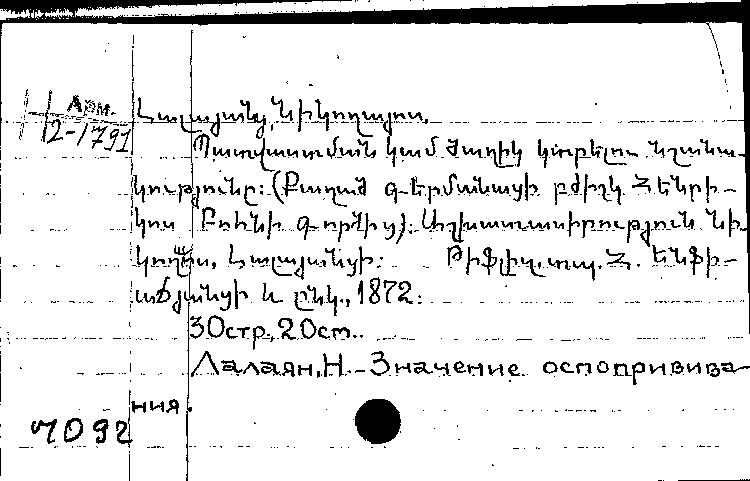 Арм.
12-1791
Լալայանց, Նիկողայոս.
Պատվաստման կամ ծաղիկ կտրելու նշանա-
կությունը: (Քաղած գերմանացի բժիշկ Հենրի-
կոս Բոհնի գործից): Աշխատասիրություն Նի-
կողոս. Լալայանցի: Թիֆլիզ, տպ. Հ. Ենֆի-
աճյանցի և ընկ., 1872.
30стр., 20cm..
Лалаян, Н. - Значение оспопривива-
ния.
7092